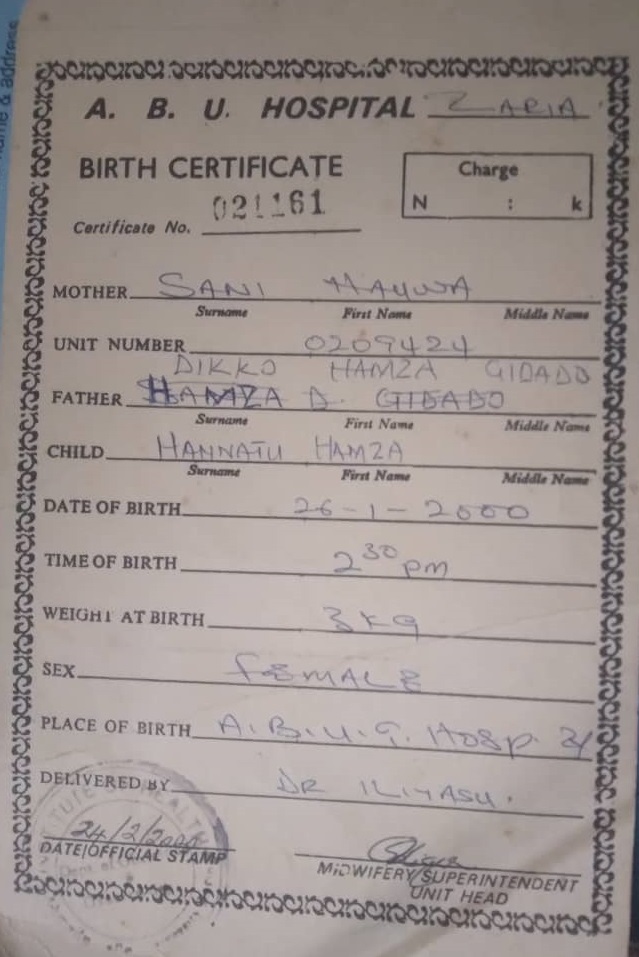 A. B. U. HOSPITAL ZARIA
BIRTH CERTIFICATE
Charge
N : k
Certificate No. 021161
MOTHER SANI HAUWA
Surname First Name Middle Name
UNIT NUMBER 0209424
DIKKO HAMZA GIDADO
FATHER HAMZA D. GIDADO
Surname First Name Middle Name
CHILD HANNATU HAMZA
Surname First Name Middle Name
DATE OF BIRTH 26-1-2000
TIME OF BIRTH 2 30 pm
WEIGHT AT BIRTH 3kg
SEX FEMALE
PLACE OF BIRTH A.B.U.T. Hosp.
DELIVERED BY DR ILIYASU.
24/2/2000
DATE/OFFICIAL STAMP
MIDWIFERY/SUPERINTENDENT
UNIT HEAD
& address